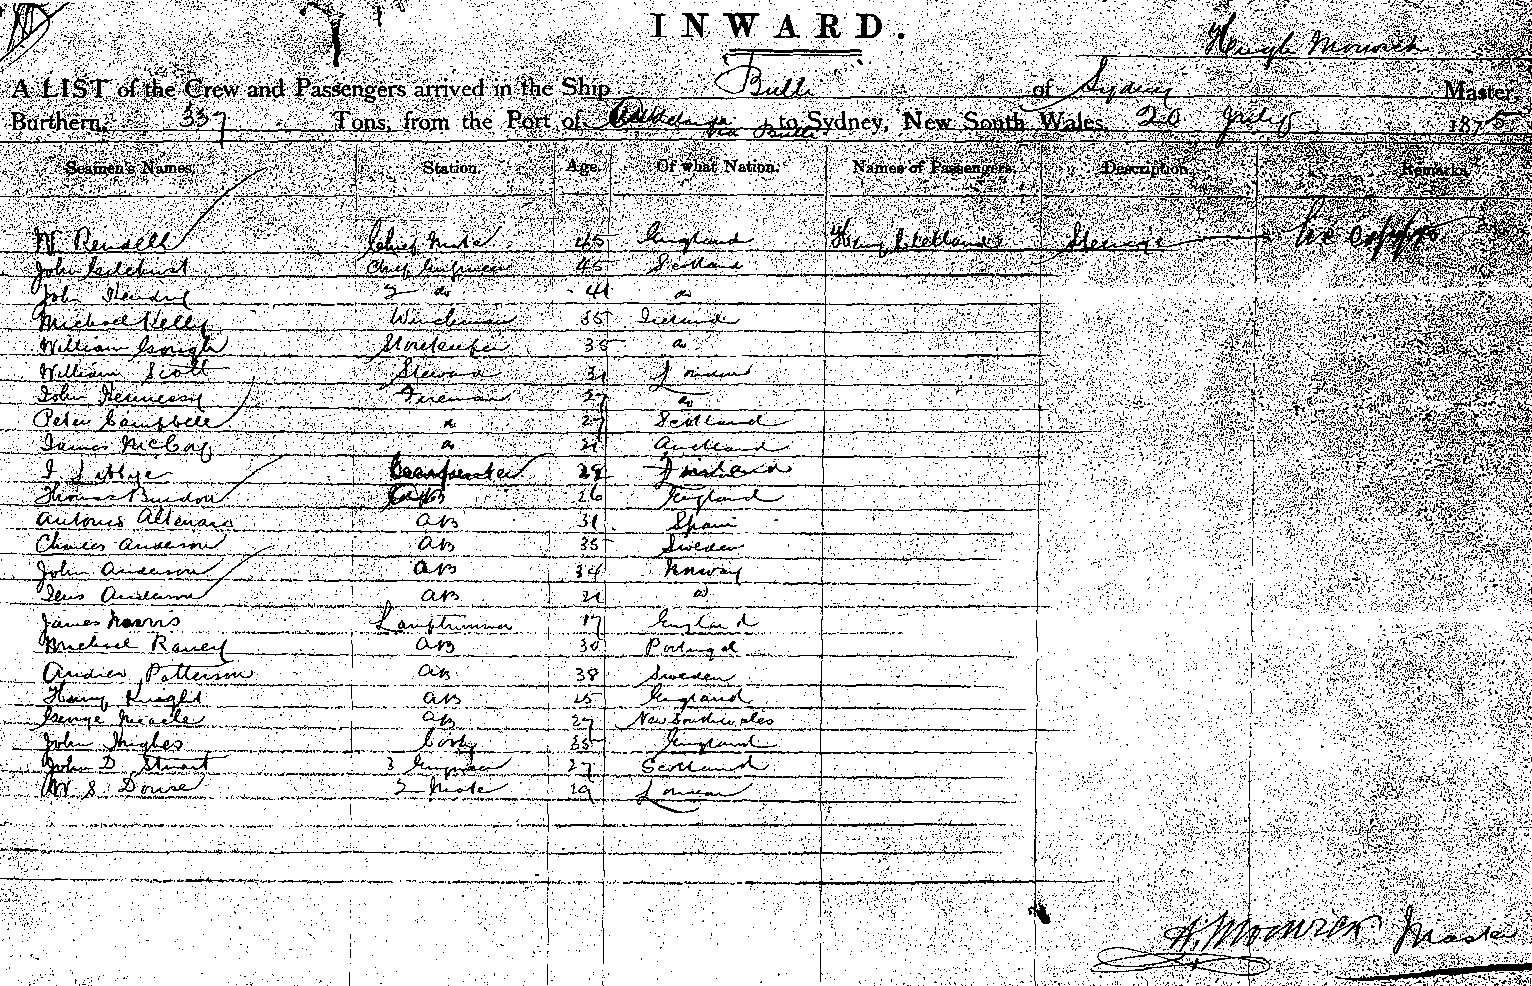 INWARD.
Hugh Monwick
A LIST of the Crew and Passengers arrived in the Ship "Bulli" of Sydney Master,
Burthern, 337 Tons, from the Port of via Bulli to Sydney, New South Wales, 20 July 1875
Seamen's Names. Station. Age. Of what Nation. Names of Passengers. Description. Remarks.
W Rendell Chief Mate 45 England Henry Steerage
John Gilchrist Chief Engineer 45 Scotland
John Hendry 2 do 41 do
Michael Kelly Winchman 35 Ireland
William Gough Storekeeper 35 do
William Scott Steward London
John Hennessy Fireman 37 do
Peter Campbell do 27 Scotland
James McCoy do 21 Auckland
Carpenter 29
Thomas Burdon AB 26 England
Antonis AB 31 Spain
Charles Anderson AB 35 Sweden
John Anderson AB 34 Norway
Anderson AB 21 do
James Norris Lamptrimmer 17 England
Michael AB 30 Portugal
Andrew Patterson AB 38 Sweden
Henry Knight AB 25 England
George AB 27 New South Wales
John Hughes Cook 35 England
John D Stuart 3 Engineer 27 Scotland
W S 2 Mate 29 London
H. Monwick Master